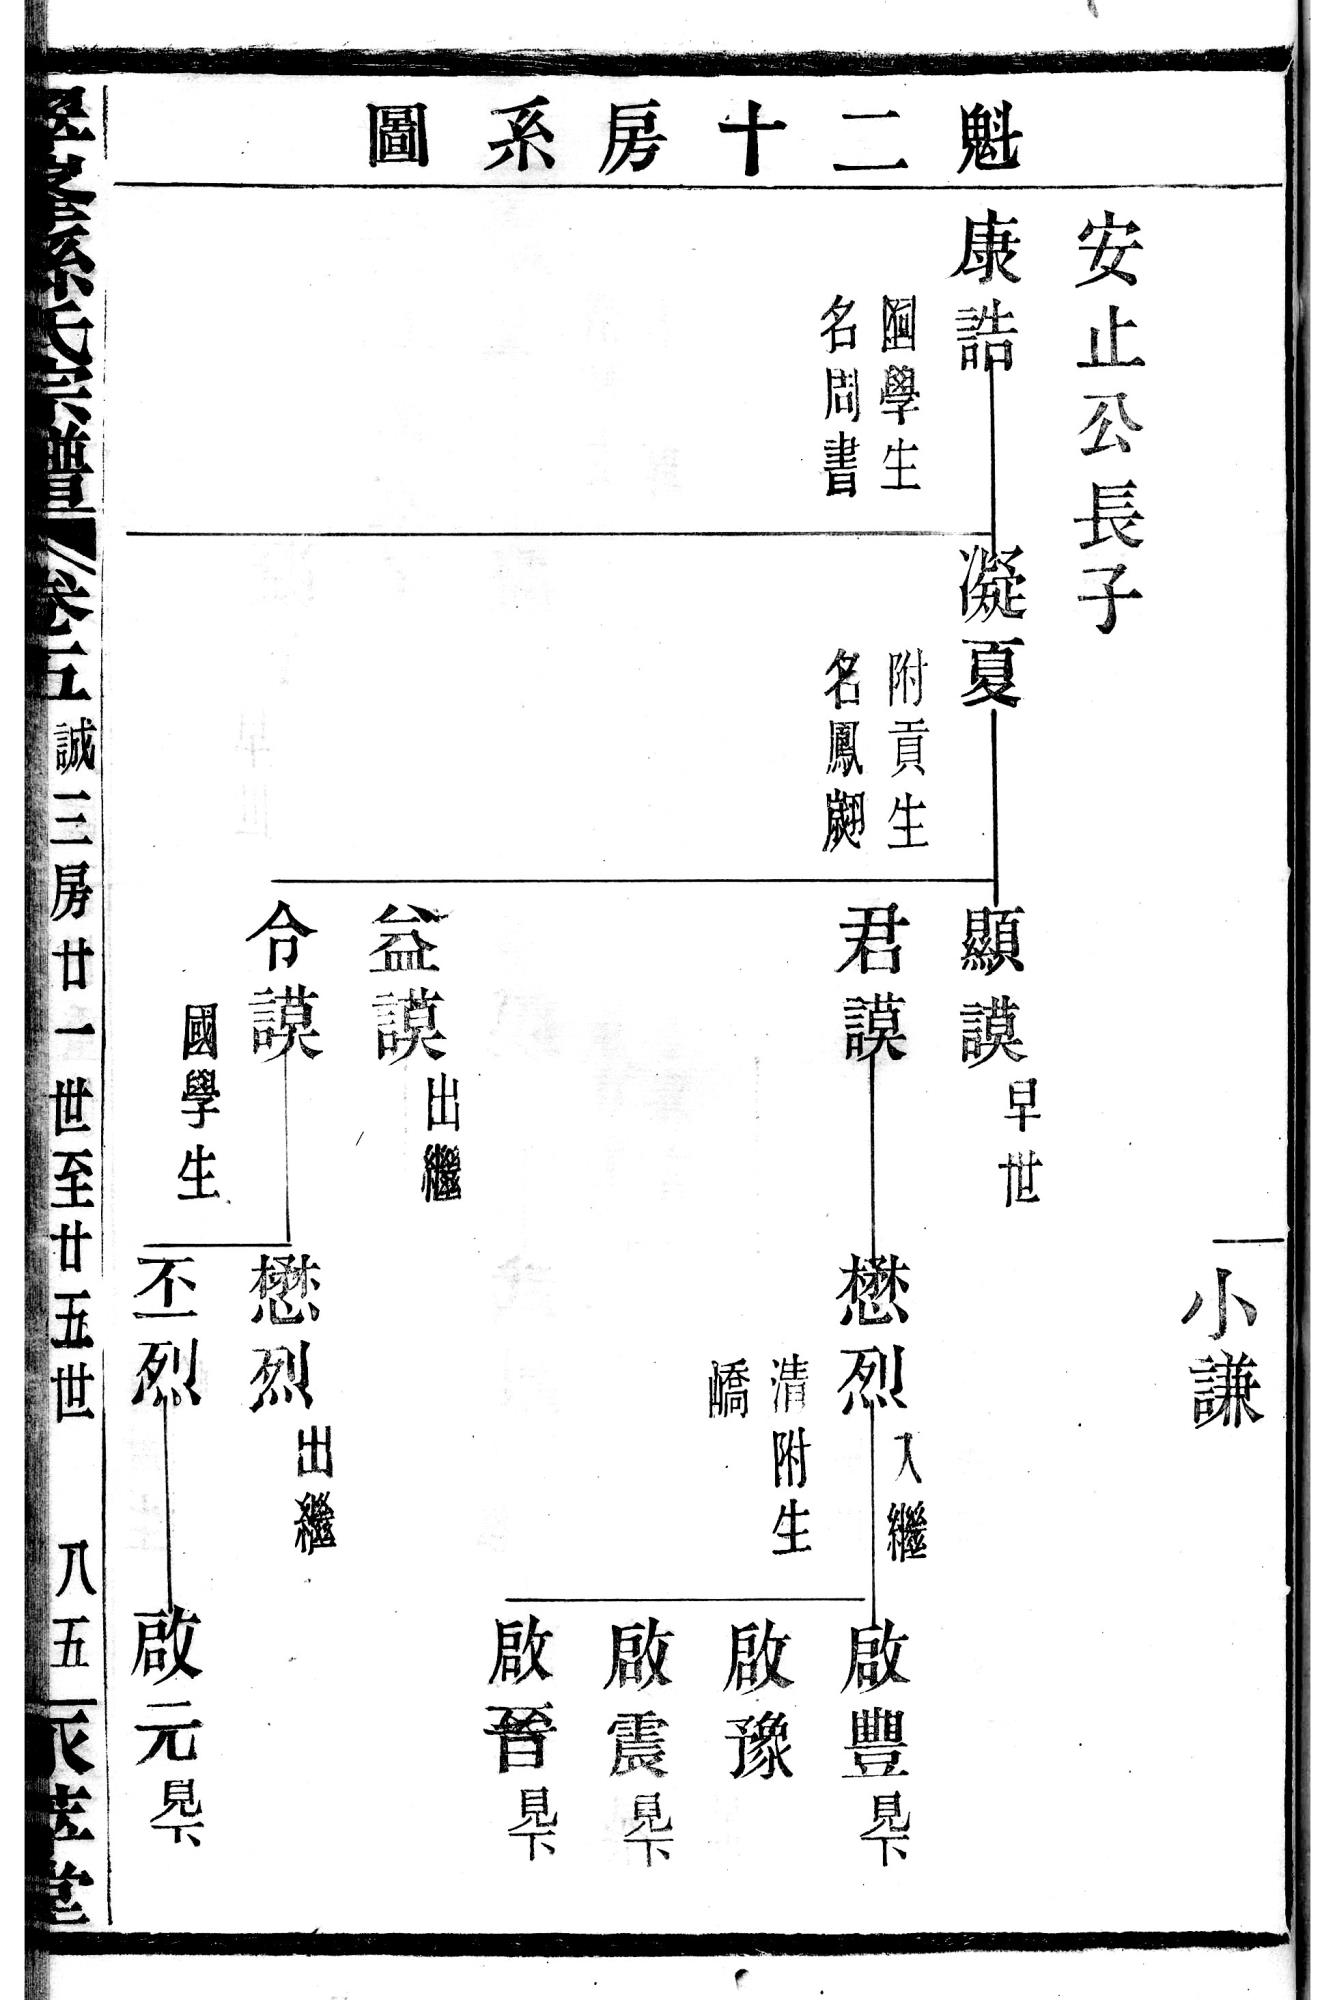 魁二十房系圖
安止公長子
康誥
國學生
名問書
凝夏
附貢生
名鳳翽
顯謨 早世
君謨
益謨 出繼
令謨
國學生
小謙
懋烈 入繼
清附生
嶠
懋烈 出繼
丕烈
啟豐 見下
啟豫
啟震 見下
啟晉 見下
啟元 見下
孫氏宗譜
卷五 誠三房廿一世至廿五世 八五
堂